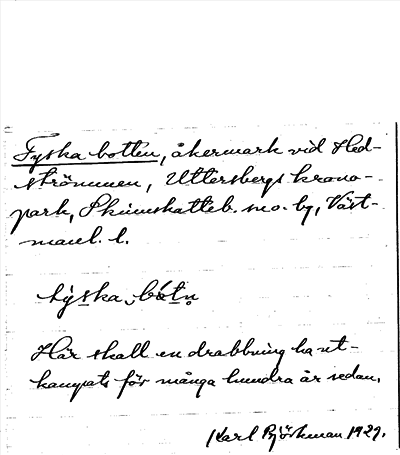 Tyska botten, åkermark vid Hed-
strömmen, Uttersbergs krono-
park, Skinnskatteb. sn o. by, Väst-
manl. l.
týska bótn
Här skall en drabbning ha ut-
kämpats för många hundra år sedan.
Karl Björkman 1929.